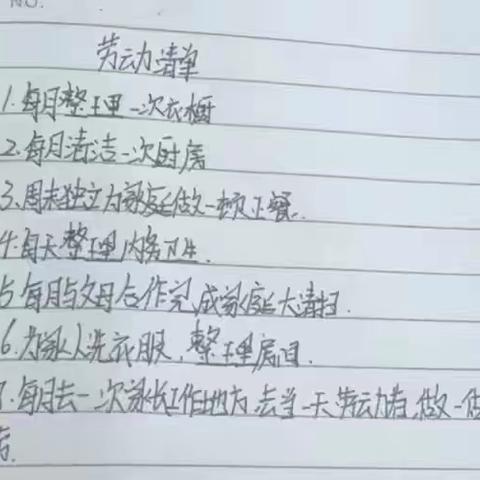 NO.
劳动清单
1.每月整理一次衣橱
2.每月清洁一次厨房
3.周末独立为家庭做一顿正餐.
4.每天整理内务卫生.
5.每月与父母合作完成家庭大清扫.
6.为家人洗衣服,整理房间.
7.每月去一次家长工作地方,去当一天劳动者,做一